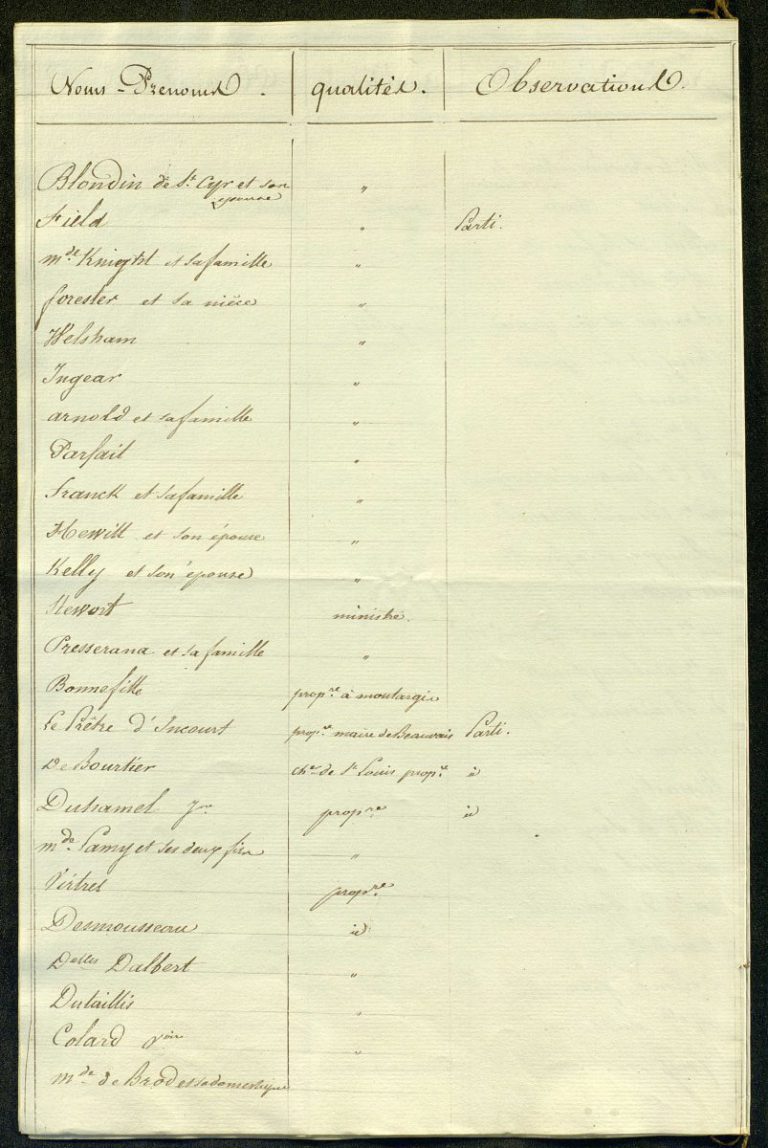 Noms - Prenoms. qualités. Observations.
Blondin de St Cyr et son "
épouse
Field " Parti.
mde. Knight et sa famille "
forester et sa nièce "
Helsham "
Ingear "
arnold et sa famille "
Parfait "
Franck et sa famille "
Hewitt et son épouse "
Kelly et son épouse "
Stewort ministre.
Presserana et sa famille "
Bonnefitte propre à montargis
Le Prêtre d'Incourt propre maire de Beauvais Parti.
De Bourtier cher de St Louis propre id
Duhamel propre id
mde. Lamy et ses deux fils "
Virtrel propre
Desmousseau id
Delles Dalbert "
Dutaillis "
Colard "
mde de Brod et sa domestique